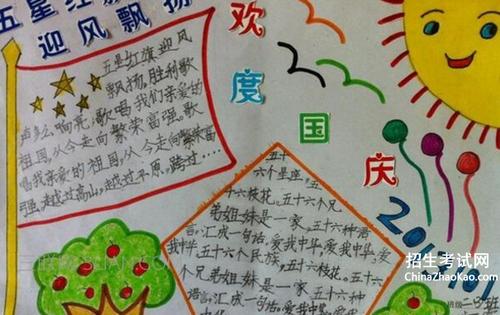 五星红
迎风飘扬
欢度国庆
五星红旗迎风
飘扬,胜利歌
声多么响亮,歌唱我们亲爱的
祖国,从今走向繁荣富强。歌
唱我亲爱的祖国,从今走向繁荣富
强。越过高山,越过平原。跨过…
五十
六个星座,五
十六枝花。五十六个兄
弟姐妹是一家,五十六种语
言,汇成一句话,爱我中华,爱我中华,爱
我中华,五十六个民族
五十六枝花。五十六
个兄弟姐妹是一家,五十六种
语言,汇成一句话,爱我中华,爱
招生考试网
ChinaZhaoKao.com
班级